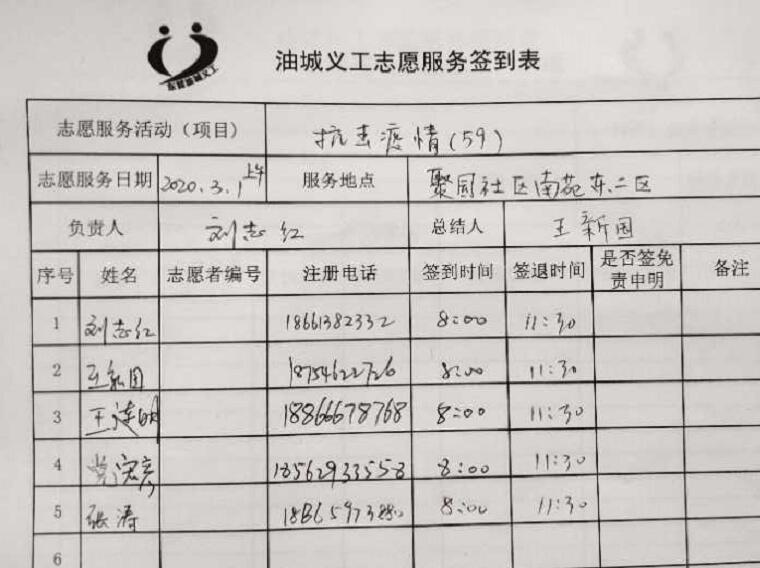 油城义工志愿服务签到表
志愿服务活动（项目） 抗击疫情(59)
志愿服务日期 2020.3.1上午 服务地点 聚园社区南苑东二区
负责人 刘志红 总结人 王新国
序号 姓名 志愿者编号 注册电话 签到时间 签退时间 是否签免责申明 备注
1 刘志红 18661382332 8:00 11:30
2 王新国 18754622726 8:00 11:30
3 王连明 18866678768 8:00 11:30
4 18562933558 8:00 11:30
5 张涛 8:00 11:30
6